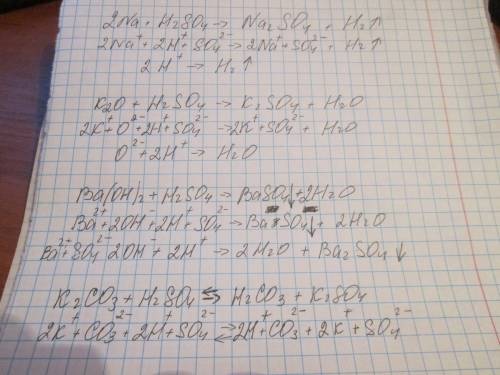 2Na + H₂SO₄ → Na₂SO₄ + H₂↑
2Na⁺ + 2H⁺ + SO₄²⁻ → 2Na⁺ + SO₄²⁻ + H₂↑
2H⁺ → H₂↑
K₂O + H₂SO₄ → K₂SO₄ + H₂O
2K⁺ + O²⁻ + 2H⁺ + SO₄²⁻ → 2K⁺ + SO₄²⁻ + H₂O
O²⁻ + 2H⁺ → H₂O
Ba(OH)₂ + H₂SO₄ → BaSO₄↓ + 2H₂O
Ba²⁺ + 2OH⁻ + 2H⁺ + SO₄²⁻ → BaSO₄↓ + 2H₂O
Ba²⁺ + SO₄²⁻ 2OH⁻ + 2H⁺ → 2H₂O + Ba₂SO₄↓
K₂CO₃ + H₂SO₄ ⇆ H₂CO₃ + K₂SO₄
2K⁺ + CO₃²⁻ + 2H⁺ + SO₄²⁻ ⇄ 2H⁺ + CO₃²⁻ + 2K⁺ + SO₄²⁻